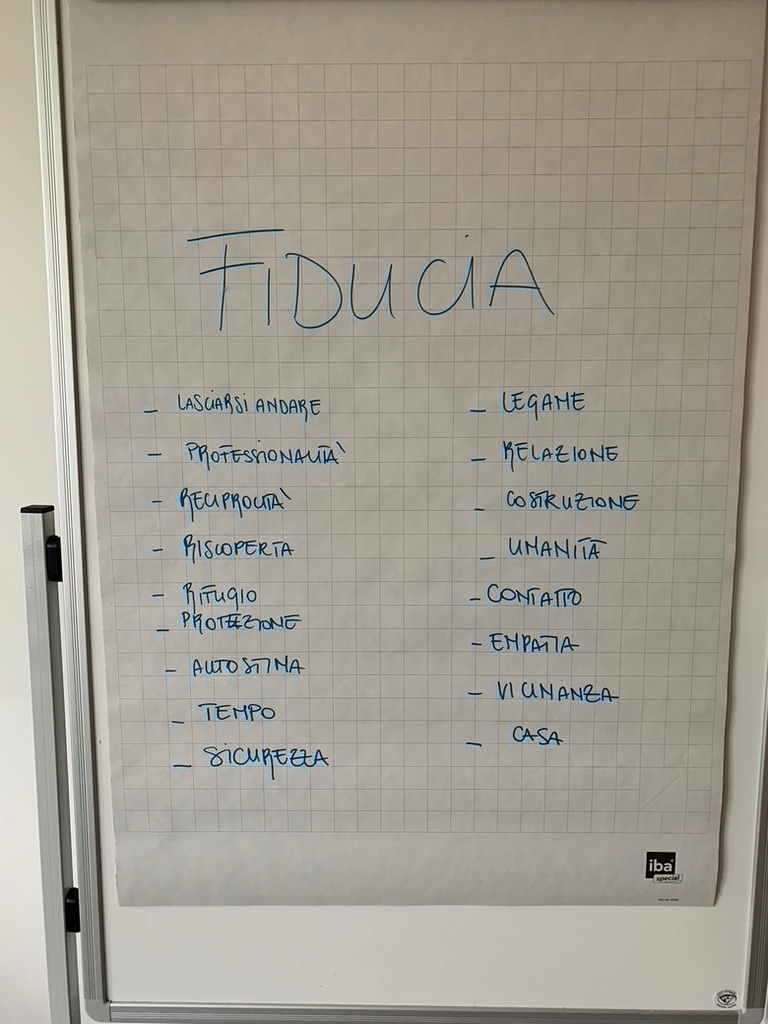 FIDUCIA
- LASCIARSI ANDARE
- PROFESSIONALITÀ
- RECIPROCITÀ
- RISCOPERTA
- RIFUGIO
- PROTEZIONE
- AUTOSTIMA
- TEMPO
- SICUREZZA
- LEGAME
- RELAZIONE
- COSTRUZIONE
- UMANITÀ
- CONTATTO
- EMPATIA
- VICINANZA
- CASA
iba
special